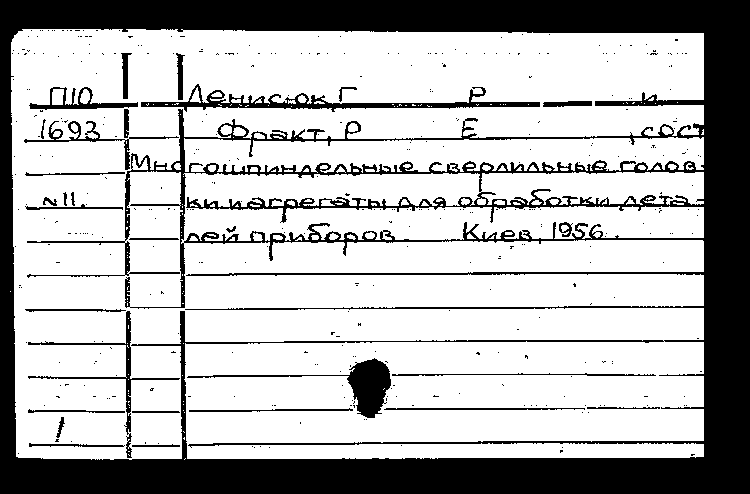 П10 Денисюк, Г Р и
1693 Фракт, Р Е , сост
Многошпиндельные сверлильные голов-
N11. ки и агрегаты для обработки дета-
лей приборов. Киев, 1956.
1